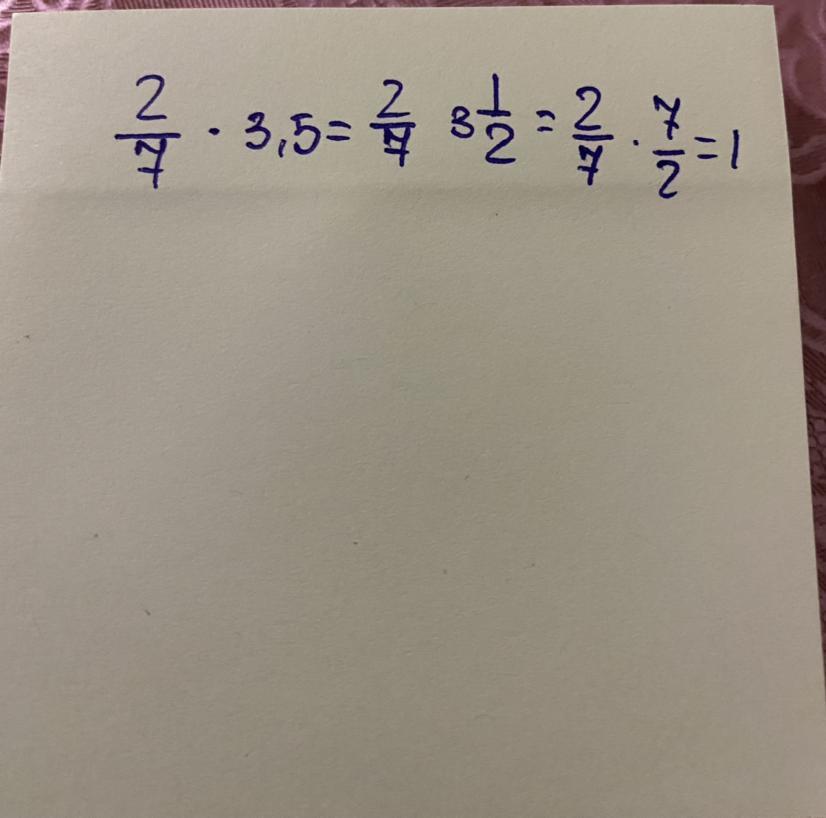 2/7 · 3,5 = 2/7 3 1/2 = 2/7 · 7/2 = 1